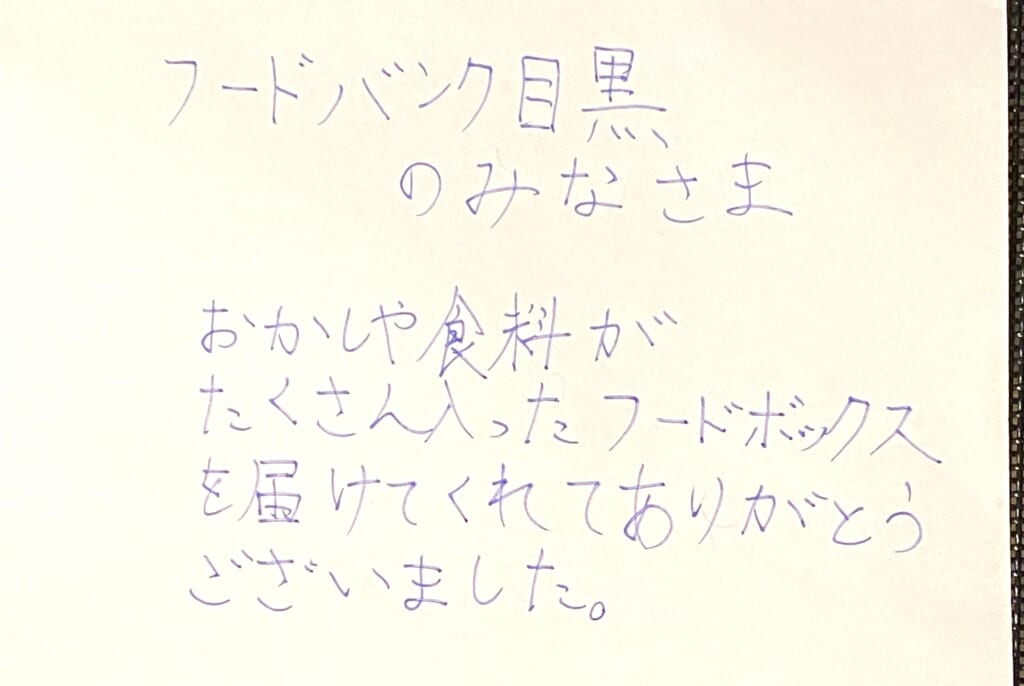 フードバンク目黒
のみなさま
おかしや食料が
たくさん入ったフードボックス
を届けてくれてありがとう
ございました。